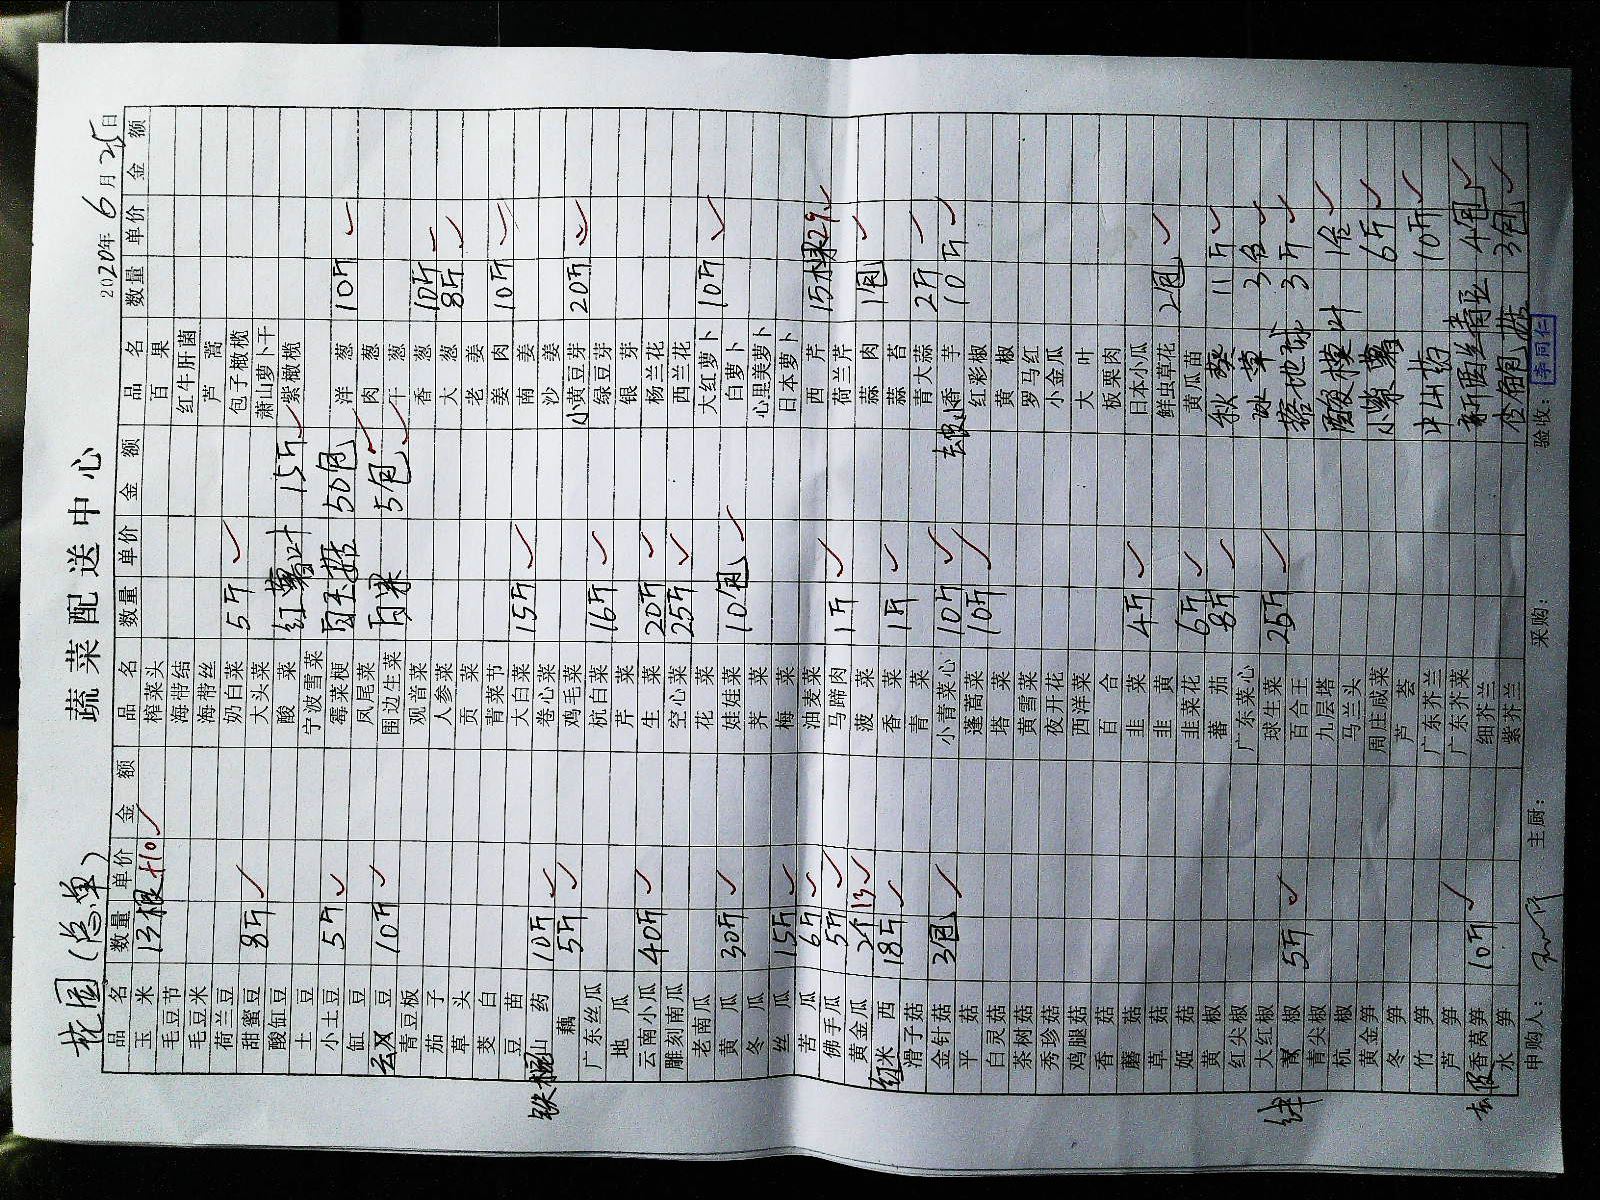 花园(总单)
蔬菜配送中心
2020年6月25日
品名 数量 单价 金额 品名 数量 单价 金额 品名 数量 单价 金额
玉米 13根 +10 榨菜头 百果
毛豆节 海带结 红牛肝菌
毛豆米 海带丝 芦蒿
荷兰豆 奶白菜 5斤 包子橄榄
甜蜜豆 8斤 大头菜 萧山萝卜干
酸缸豆 酸菜 红薯叶 15斤 紫橄榄
土豆 宁波雪菜
小土豆 5斤 霉菜梗 白玉菇 50包 洋葱 10斤
缸豆 凤尾菜 肉葱
豆 10斤 围边生菜 百果 5包 干葱
青豆板 观音菜 香葱 10斤
茄子 人参菜 大葱 8斤
草头 贡菜 老姜
茭白 青菜节 姜肉 10斤
豆苗 大白菜 15斤 南姜
铁棍山药 10斤 卷心菜 沙姜
藕 5斤 鸡毛菜 小黄豆芽 20斤
广东丝瓜 杭白菜 16斤 绿豆芽
地瓜 芹菜 银芽
云南小瓜 40斤 生菜 20斤 杨兰花
雕刻南瓜 空心菜 25斤 西兰花
老南瓜 花菜 大红萝卜 10斤
黄瓜 30斤 娃娃菜 10包 白萝卜
冬瓜 荠菜 心里美萝卜
丝瓜 15斤 梅菜 日本萝卜
苦瓜 6斤 油麦菜 西芹 15 29
佛手瓜 5斤 马蹄肉 1斤 荷兰芹
黄金瓜 2个 13 菠菜 蒜肉 1包
红米西 18斤 香菜 1斤 蒜苔
滑子菇 青菜 青大蒜 2斤
金针菇 3包 小青菜心 10斤 去皮小香芋 10斤
平菇 蓬蒿菜 10斤 红彩椒
白灵菇 塔菜 黄椒
茶树菇 黄雪菜 罗马红
秀珍菇 夜开花 小金瓜
鸡腿菇 西洋菜 大叶
香菇 百合 板栗肉
蘑菇 韭菜 4斤 日本小瓜
草菇 韭黄 鲜虫草花 2包
姬菇 韭菜花 6斤 黄瓜苗
黄椒 蕃茄 8斤 秋葵 11斤
红尖椒 广东菜心 冰草 3包
大红椒 球生菜 25斤 落地球 3斤
椒 5斤 百合王
青尖椒 九层塔 酸模叶 1包
杭椒 马兰头 小紫薯 6斤
黄金笋 周庄咸菜
冬笋 芦荟 中山药 10斤
竹笋 广东芥兰
芦笋 广东芥菜 4包
去皮香莴笋 10斤 细芥兰 杏鲍菇 3包
水笋 紫芥兰
申购人: 主厨: 采购: 验收: 李同仁